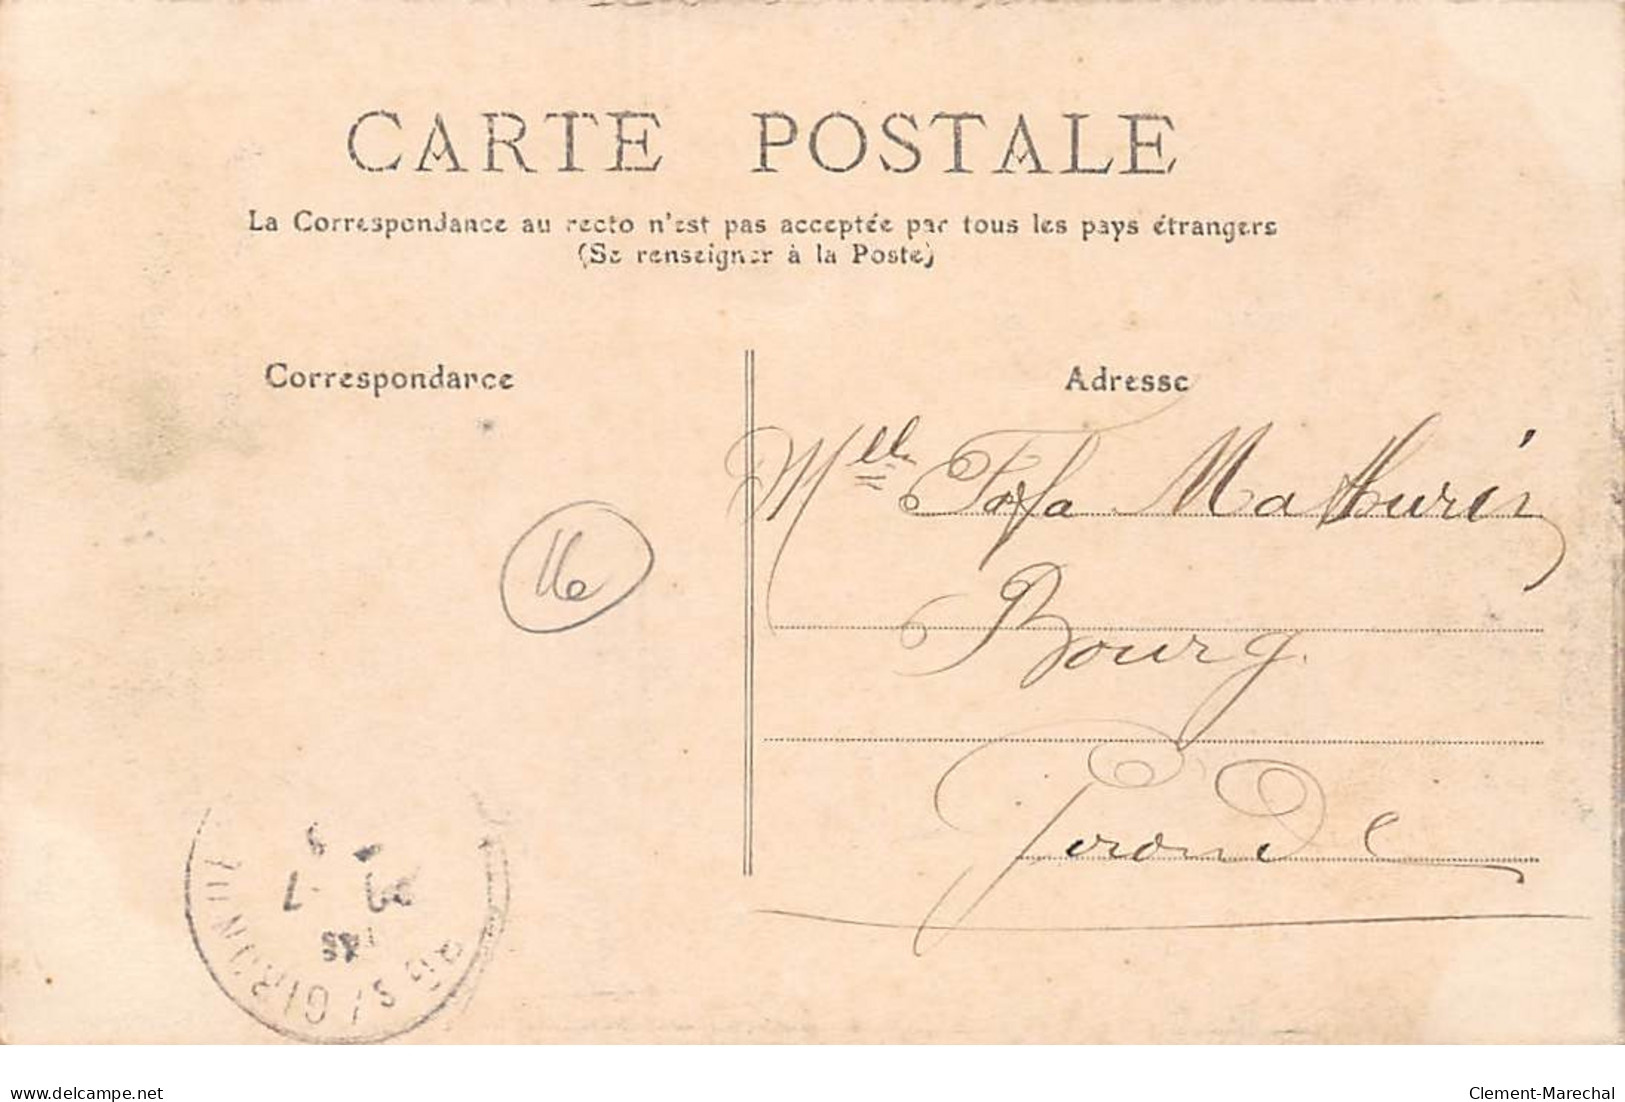 CARTE POSTALE
La Correspondance au recto n'est pas acceptée par tous les pays étrangers
(Se renseigner à la Poste)
Correspondance
Adresse
Mlle Mathurin
16
Bourg
Gironde
S/ GIRONDE
delcampe.net
Clement-Marechal